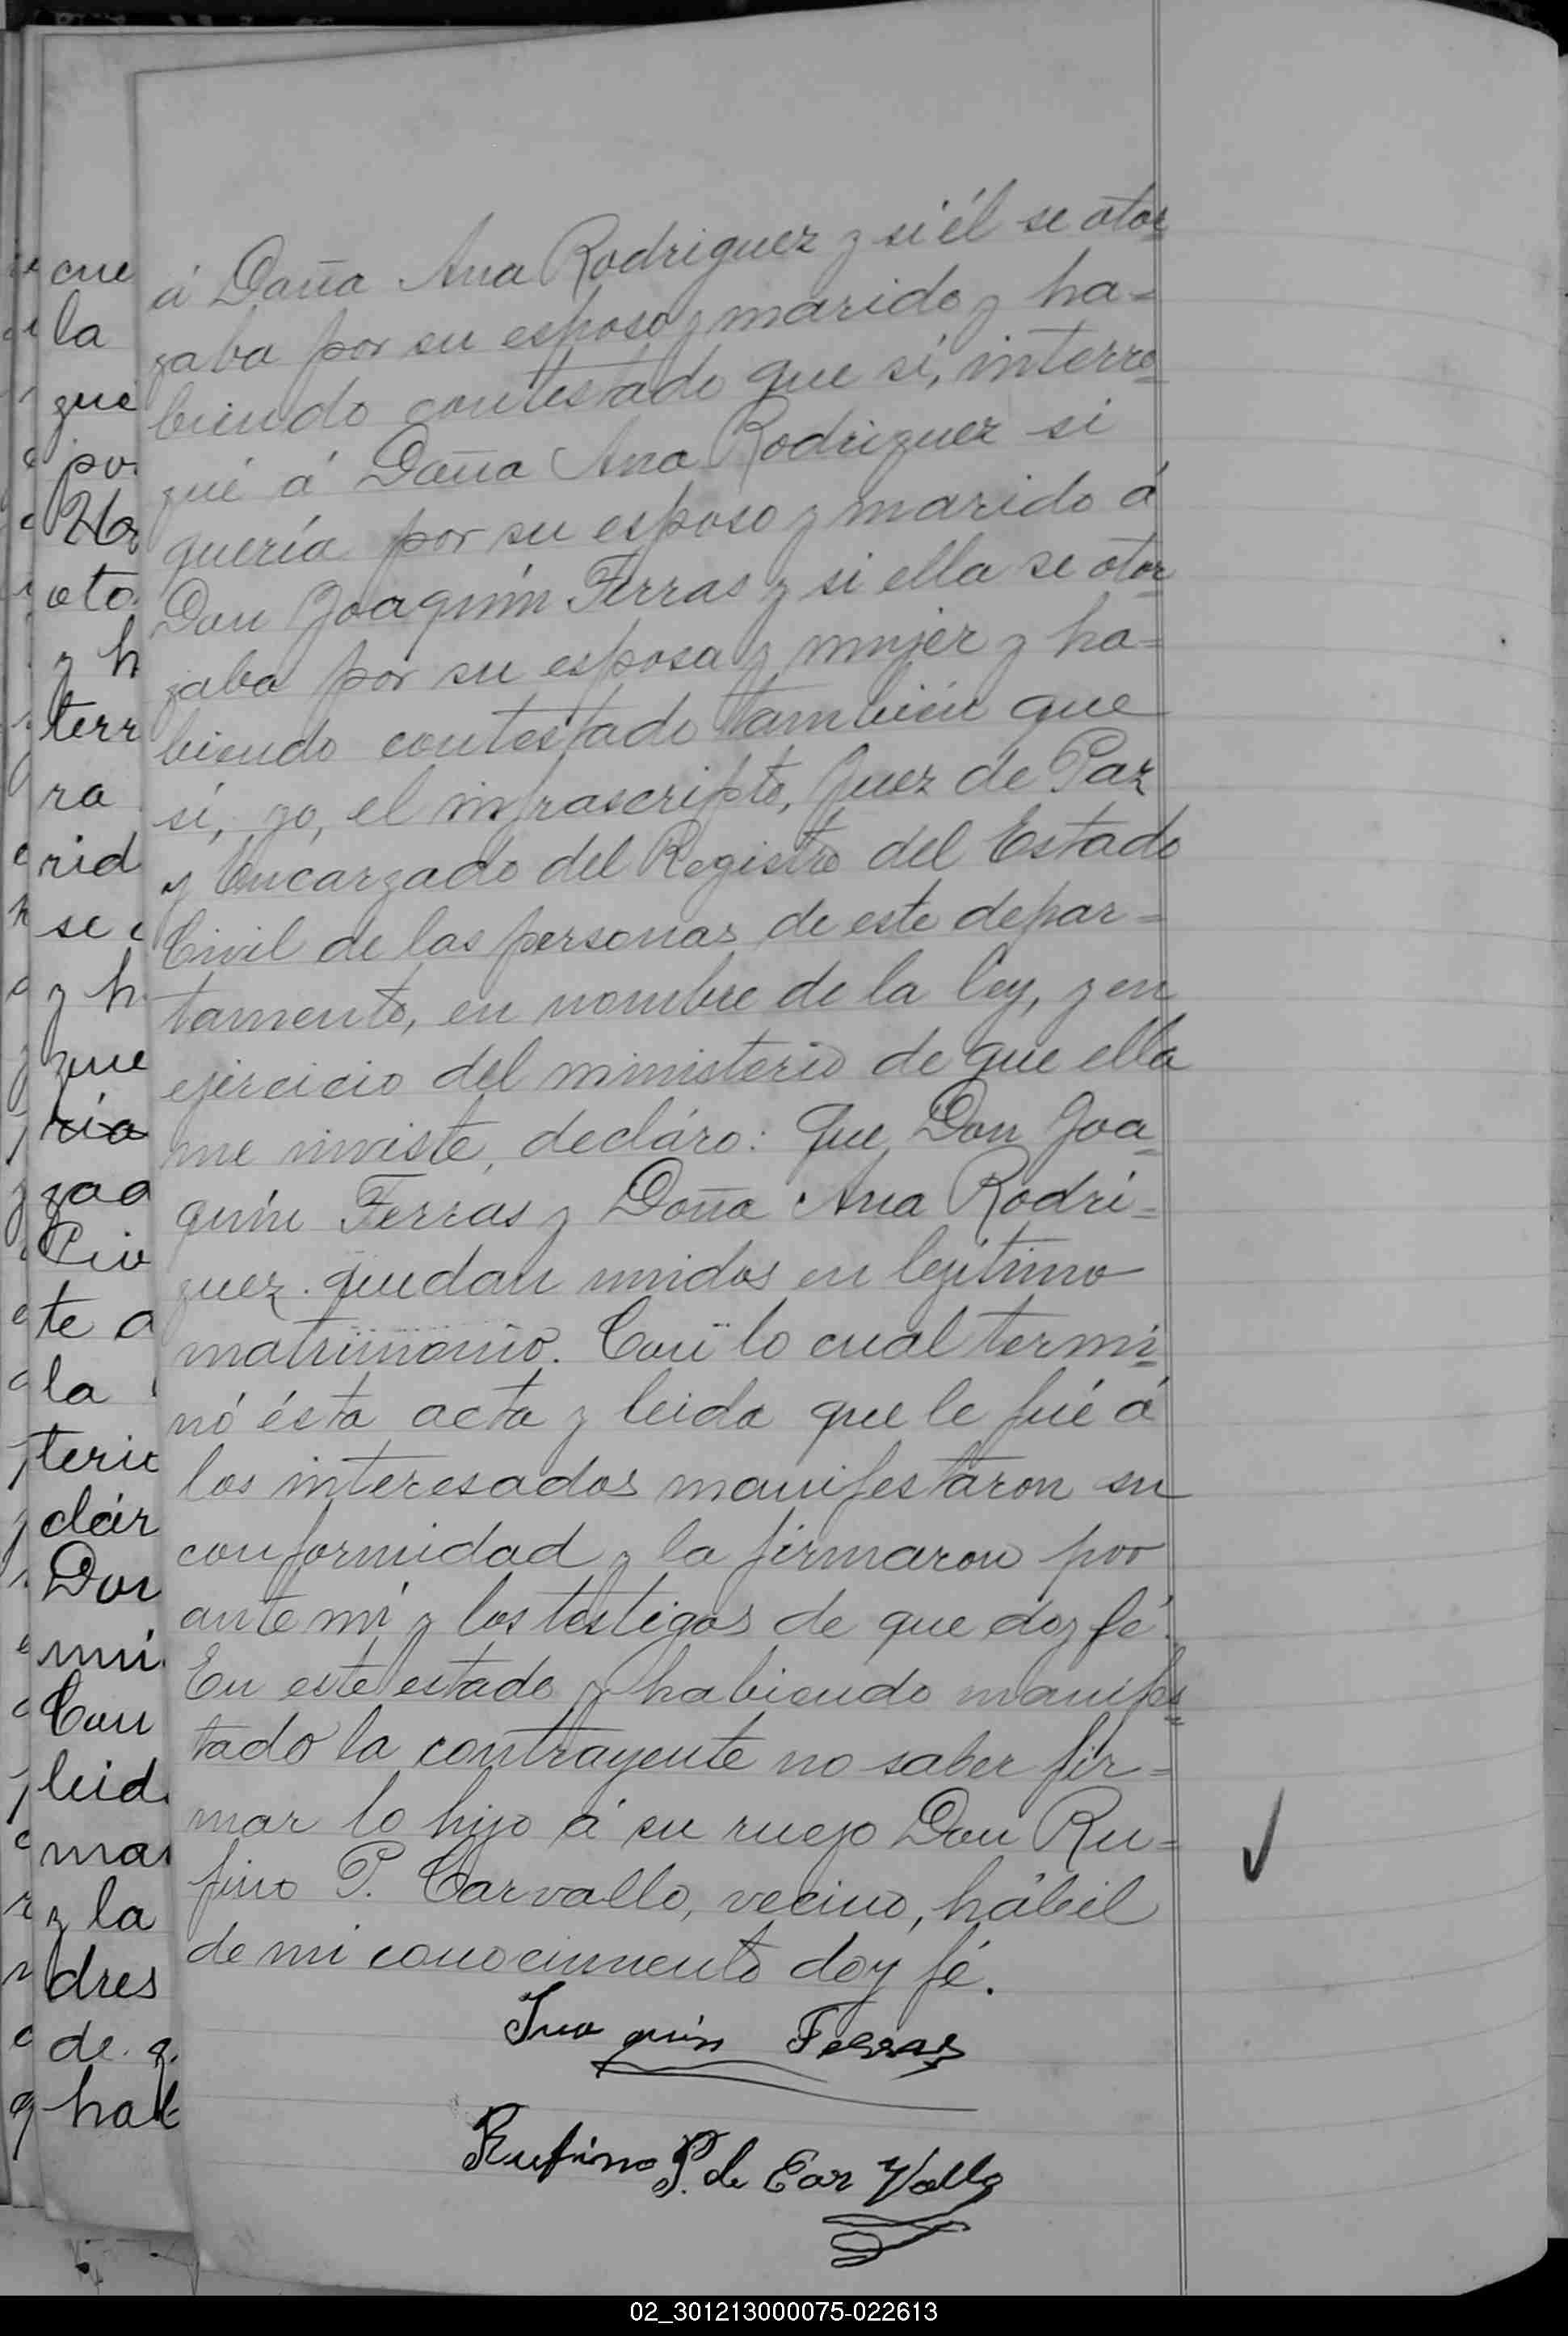 á Doña Ana Rodriguez y si él se otor-
gaba por su esposo y marido y ha=
biendo contestado que si, interro-
gué á Doña Ana Rodriguez si
quería por su esposo y marido á
Don Joaquín Ferras y si ella se otor-
gaba por su esposa y mujer y ha=
biendo contestado también que
sí, yo, el infrascripto, Juez de Paz
y Encargado del Registro del Estado
Civil de las personas de este depar=
tamento, en nombre de la ley, y en
ejercicio del ministerio de que ella
me inviste, decláro: que Don Joa-
quín Ferras y Doña Ana Rodri=
guez quedan unidos en legitimo
matrimonio. Con lo cual termi-
nó ésta acta y leida que le fué á
los interesados manifestaron su
conformidad y la firmaron por
ante mí y los testigos de que doy fé.
En este estado y habiendo manifes=
tado la contrayente no saber fir=
mar lo hijo á su ruego Don Ru=
fino P. Carvallo, vecino, hábil
de mi conocimiento doy fé.
Juaquín Ferras
Rufino P. de Car Vallo
cue
la
gué
por
oto
y h
terr
ra
rid
se
y h
gue
ria
gad
Civ
te d
la
teric
clár
Don
uni
Con
leid
mar
y la
dres
de q
hab
02_301213000075-022613